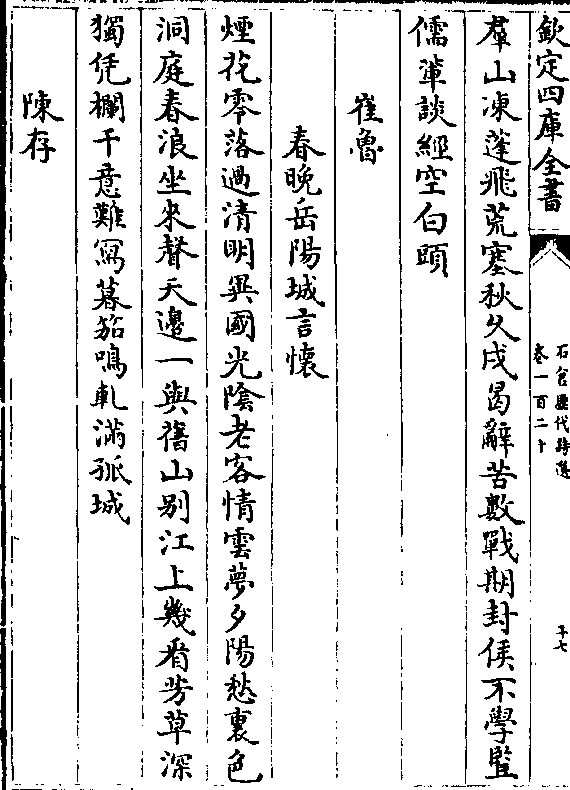 欽定四庫全書
石倉歷代詩選
卷一百二十
羣山凍蓬飛荒塞秋久戍曷辭苦數戰期封侯不學豎
儒軰談經空白頭
崔魯
春晚岳陽城言懷
煙花零落過清明異國光陰老客情雲夢夕陽愁裏色
洞庭春浪坐來聲天邊一與舊山别江上幾看芳草深
獨凭欄干意難寫暮笳鳴軋滿孤城
陳存